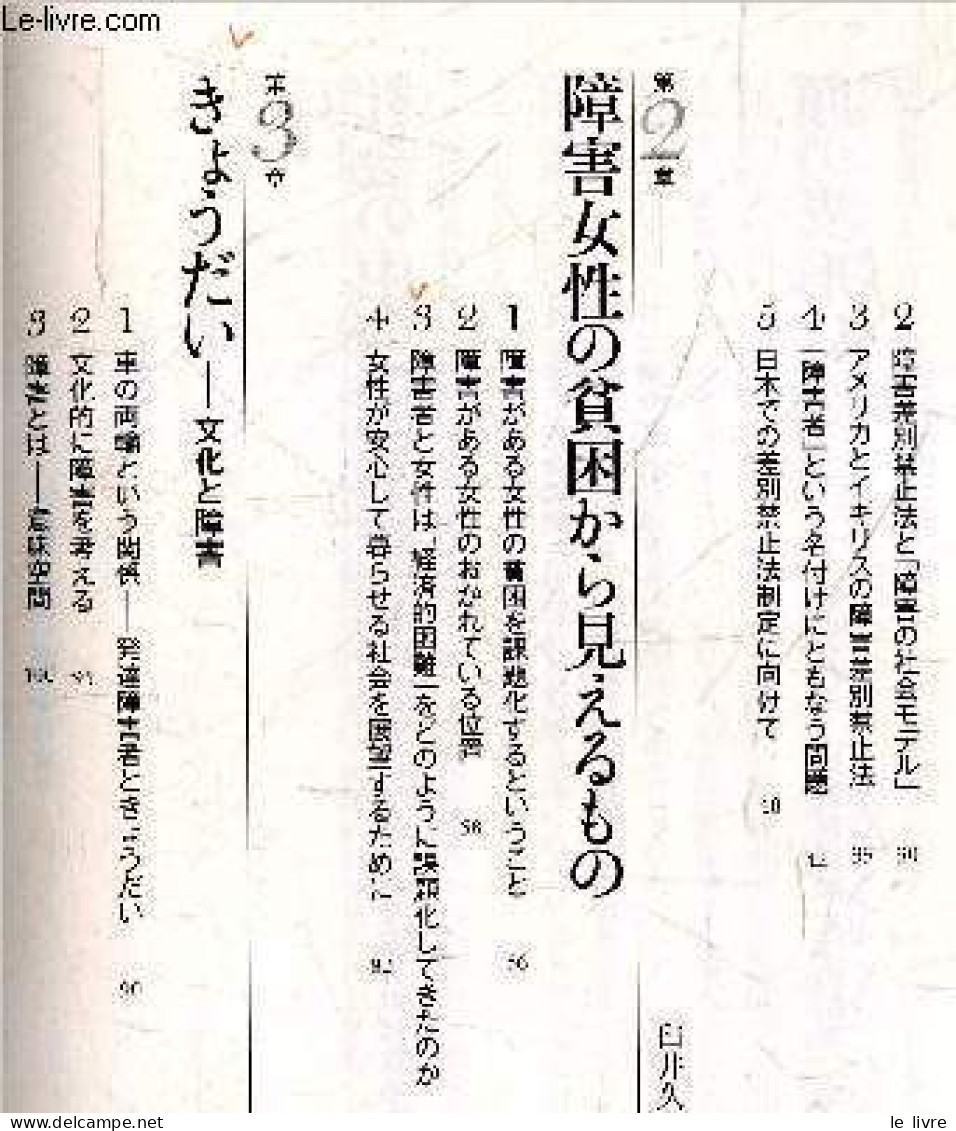 Le-livre.com
2 障害差別禁止法と「障害の社会モデル」 30
3 アメリカとイギリスの障害差別禁止法 35
4 「障害者」という名付けにともなう問題
5 日本での差別禁止法制定に向けて
第2章
障害女性の貧困から見えるもの
臼井久
1 障害がある女性の貧困を課題化するということ 56
2 障害がある女性のおかれている位置 58
3 障害者と女性は「経済的困難」をどのように課題化してきたのか
4 女性が安心して暮らせる社会を展望するために 82
第3章
きょうだい──文化と障害
1 車の両輪という関係──発達障害者ときょうだい 90
2 文化的に障害を考える
3 障害とは──意味空間
le livre